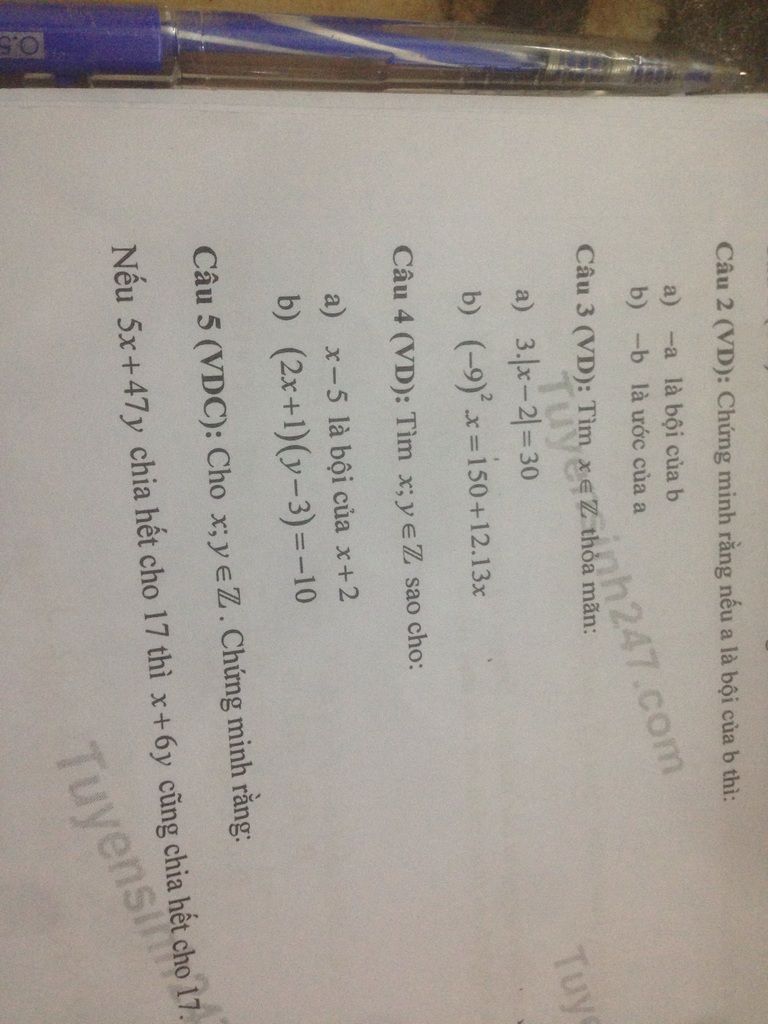 Câu 2 (VD): Chứng minh rằng nếu a là bội của b thì:
a) −a là bội của b
b) −b là ước của a
Câu 3 (VD): Tìm x ∈ ℤ thỏa mãn:
a) 3.|x − 2| = 30
b) (−9)² .x = 150 + 12.13x
Câu 4 (VD): Tìm x; y ∈ ℤ sao cho:
a) x − 5 là bội của x + 2
b) (2x + 1)(y − 3) = −10
Câu 5 (VDC): Cho x; y ∈ ℤ. Chứng minh rằng:
Nếu 5x + 47y chia hết cho 17 thì x + 6y cũng chia hết cho 17.
Tuyensinh247.com
Tuyensinh247
Tuye